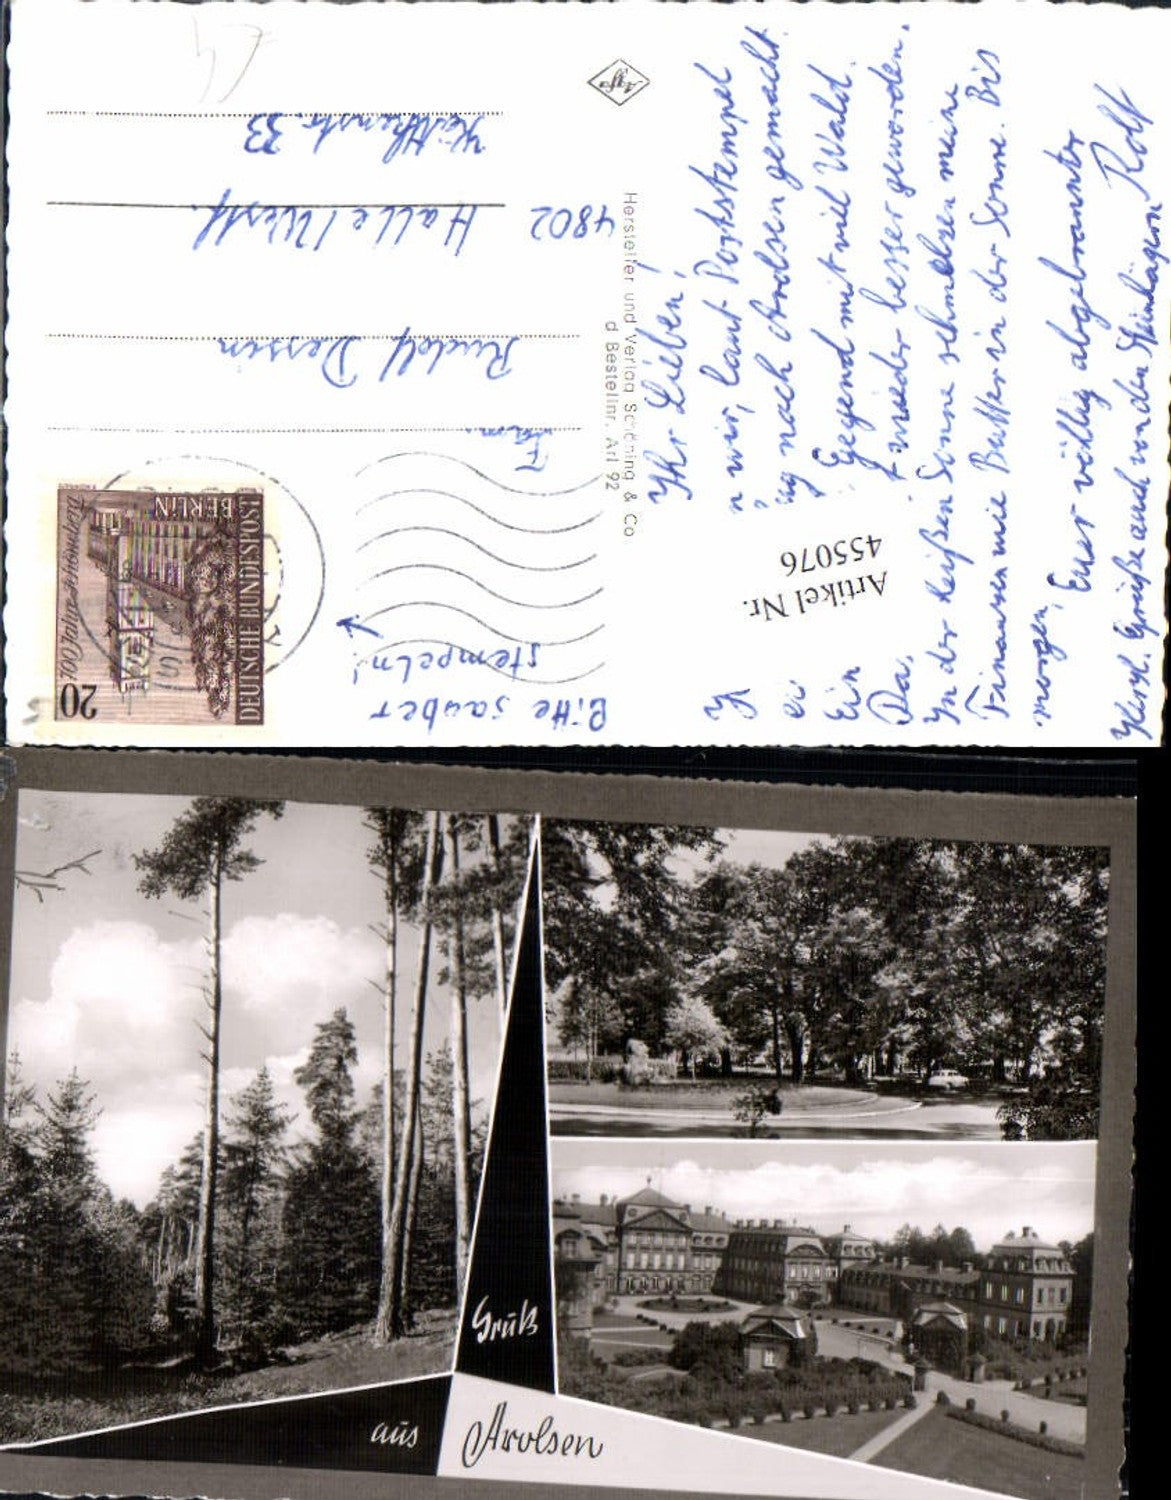 Ihr Lieben!
wir, laut Poststempel
nach Arolsen gemacht.
Ein Gegend mit viel Wald.
Da wieder besser geworden.
In der heißen Sonne schmelzen meine
Finanzen wie Butter in der Sonne. Bis
morgen, Euer völlig abgebrannter
Herzl. Grüße auch von den Rolf
Artikel Nr.
455076
Agfa
Hersteller und Verlag Schöning & Co
d Bestellnr. Arl 92
Bitte sauber
stempeln!
Fam.
Rudolf Dessin
4802 Halle/Westf.
33
20
700 Jahre Schöneberg
DEUTSCHE BUNDESPOST
BERLIN
Gruß
aus Arolsen